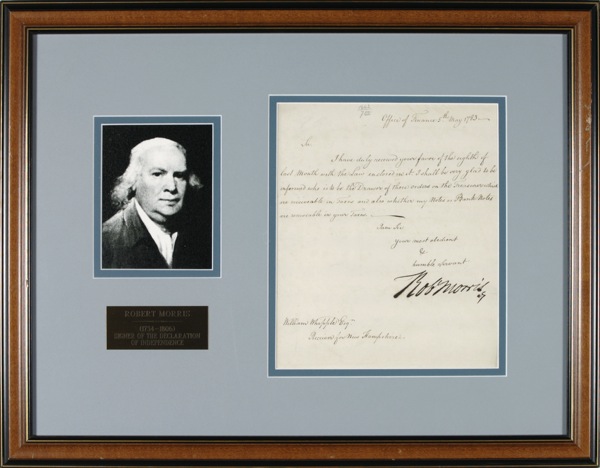 Office of Finance 6th May 1783
Sir
I have duly received your favor of the eighth of
last Month with the Law enclosed in it. I shall be very glad to be
informed who is to be the Drawer of those orders on the Treasurer which
are receivable in taxes and also whether my Notes or Bank Notes
are receivable in your taxes
I am Sir
your most obedient
&
humble Servant
Robt Morris
William Whipple Esqr
Receiver for New Hampshire
ROBERT MORRIS
(1734-1806)
SIGNER OF THE DECLARATION
OF INDEPENDENCE